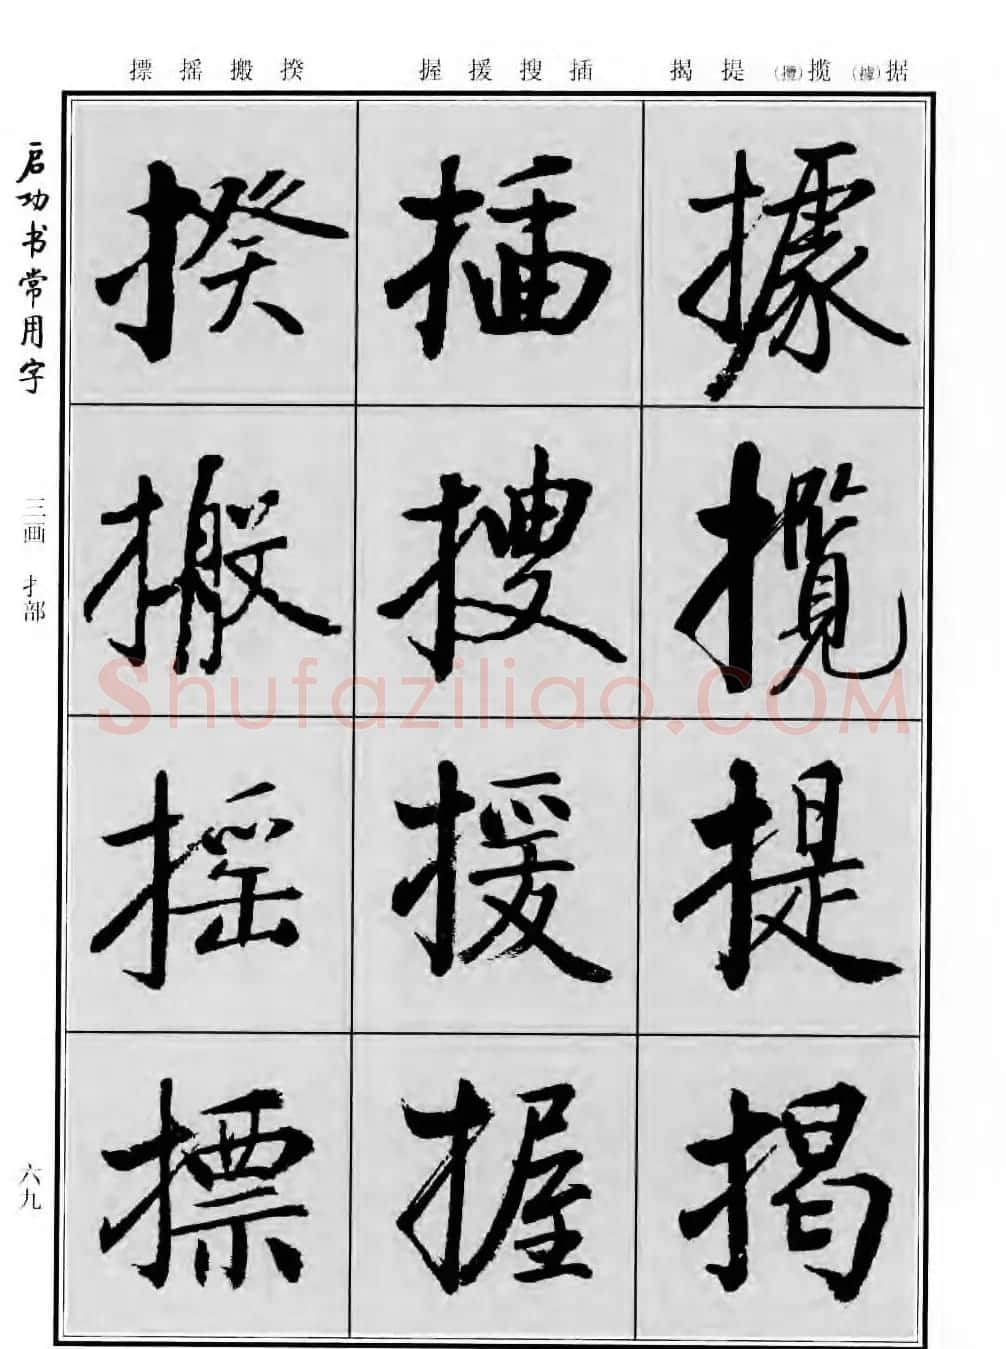 据(據)揽(攬)提揭
插搜援握
揆搬摇摽
據
攬
提
揭
插
搜
援
握
揆
搬
摇
摽
启功书常用字
三画 扌部
六九
Shufaziliao.COM